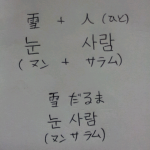 雪 + 人 (ひと)
눈 사람
(ヌン + サラム)
雪だるま
눈 사람
(ヌン サラム)